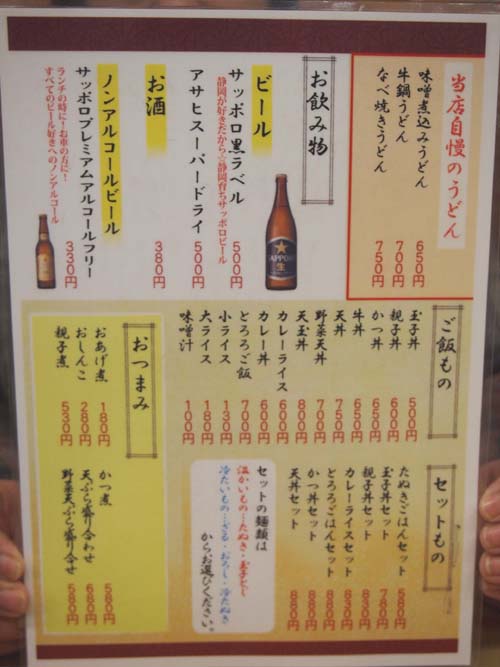 当店自慢のうどん
味噌煮込みうどん 650円
牛鍋うどん 700円
なべ焼きうどん 750円
お飲み物
ビール
サッポロ黒ラベル 500円
静岡が好きだから☆静岡育ちサッポロビール
アサヒスーパードライ 500円
お酒 380円
ノンアルコールビール
サッポロプレミアムアルコールフリー 330円
ランチの時に!お車の方に!
すべてのビール好きへのノンアルコール
SAPPORO
生
ご飯もの
玉子丼 500円
親子丼 600円
かつ丼 650円
牛丼 650円
天丼 750円
野菜天丼 700円
天玉丼 800円
カレーライス 600円
カレー丼 600円
とろろご飯 700円
小ライス 130円
大ライス 180円
味噌汁 100円
おつまみ
おあげ煮 180円
おしんこ 280円
親子煮 530円
かつ煮 580円
天ぷら盛り合わせ 680円
野菜天ぷら盛り合せ 580円
セットもの
たぬきごはんセット 580円
玉子丼セット 780円
親子丼セット 830円
カレーライスセット 830円
とろろごはんセット 880円
かつ丼セット 880円
天丼セット 880円
セットの麺類は
温かいもの…たぬき・玉子とじ
冷たいもの…ざる・おろし・冷たぬき
からお選びください。